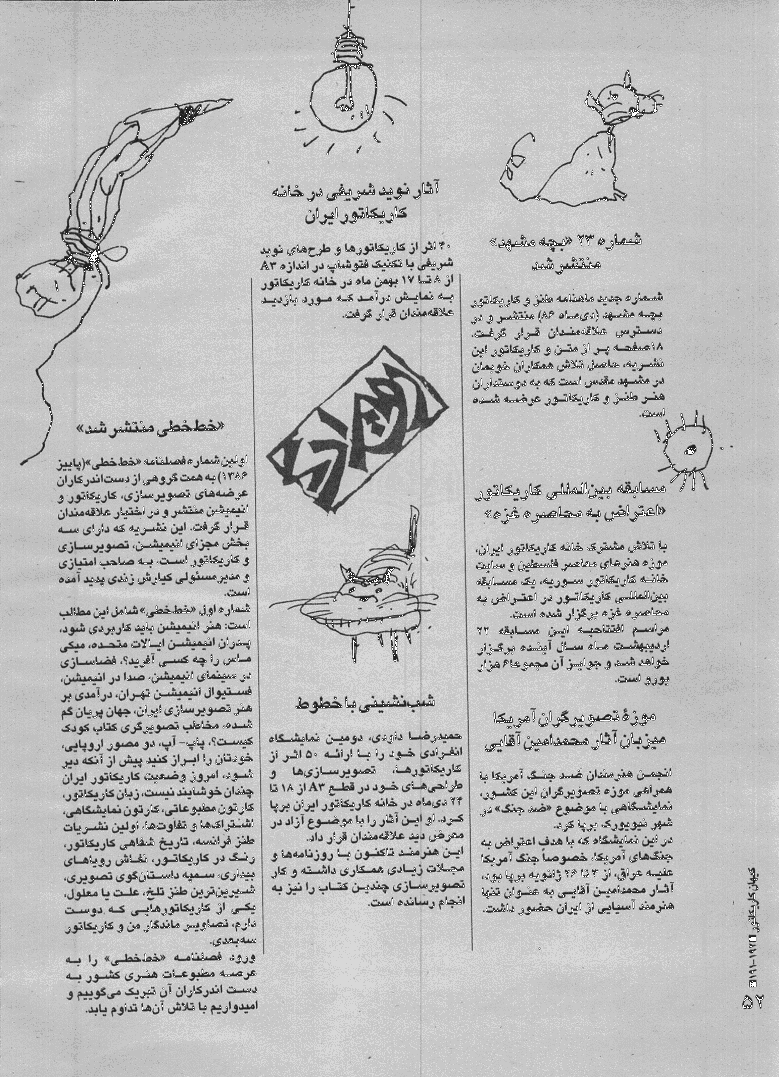 شماره ۲۳ «بچه مشهد»
منتشر شد
شماره جدید ماهنامه طنز و کاریکاتور
بچه مشهد (دی‌ماه ۸۶) منتشر و در
دسترس علاقه‌مندان قرار گرفت.
۱۸صفحه پر از متن و کاریکاتور این
نشریه، حاصل تلاش همکاران خوبمان
در مشهد مقدس است که به دوستداران
هنر طنز و کاریکاتور عرضه شده
است.
مسابقه بین‌المللی کاریکاتور
«اعتراض به محاصره غزه»
با تلاش مشترک خانه کاریکاتور ایران،
موزه هنرهای معاصر فلسطین و سایت
خانه کاریکاتور سوریه، یک مسابقه
بین‌المللی کاریکاتور در اعتراض به
محاصره غزه برگزار شده است.
مراسم افتتاحیه این مسابقه ۲۳
اردیبهشت ماه سال آینده برگزار
خواهد شد و جوایز آن مجموعا۶ هزار
یورو است.
موزهٔ تصویرگران آمریکا
میزبان آثار محمدامین آقایی
انجمن هنرمندان ضد جنگ آمریکا با
همراهی موزه تصویرگران این کشور،
نمایشگاهی با موضوع «ضد جنگ» در
شهر نیویورک برپا کرد.
در این نمایشگاه که با هدف اعتراض به
جنگ‌های آمریکا، خصوصا جنگ آمریکا
علیه عراق، از ۳ تا ۲۶ ژانویه برپا بود،
آثار محمدامین آقایی به عنوان تنها
هنرمند آسیایی از ایران حضور داشت.
آثار نوید شریفی در خانه
کاریکاتور ایران
۴۰ اثر از کاریکاتورها و طرح‌های نوید
شریفی با تکنیک فتوشاپ در اندازه A۳
از ۸ تا ۱۷ بهمن ماه در خانه کاریکاتور
به نمایش درآمد که مورد بازدید
علاقه‌مندان قرار گرفت.
شب‌نشینی با خطوط
حمیدرضا داودی، دومین نمایشگاه
انفرادی خود را با ارائه ۵۰ اثر از
کاریکاتورها، تصویرسازی‌ها و
طراحی‌های خود در قطع A۳ از ۱۸ تا
۲۴ دی‌ماه در خانه کاریکاتور ایران برپا
کرد. او این آثار را با موضوع آزاد در
معرض دید علاقه‌مندان قرار داد.
این هنرمند تاکنون با روزنامه‌ها و
مجلات زیادی همکاری داشته و کار
تصویرسازی چندین کتاب را نیز به
انجام رسانده است.
«خط‌خطی منتشر شد»
اولین شماره فصلنامه «خط‌خطی»(پاییز
۱۳۸۶) به همت گروهی از دست‌اندرکاران
عرصه‌های تصویرسازی، کاریکاتور و
انیمیشن منتشر و در اختیار علاقه‌مندان
قرار گرفت. این نشریه که دارای سه
بخش مجزای انیمیشن، تصویرسازی
و کاریکاتور است، به صاحب امتیازی
و مدیرمسئولی کیارش زندی پدید آمده
است.
شماره اول «خط‌خطی» شامل این مطالب
است: هنر انیمیشن باید کاربردی شود،
پدران انیمیشن ایالات متحده، میکی
ماس را چه کسی آفرید؟، فضاسازی
در سینمای انیمیشن، صدا در انیمیشن،
فستیوال انیمیشن تهران، درآمدی بر
هنر تصویرسازی ایران، جهان پریان گم
شده، مخاطب تصویرگری کتاب کودک
کیست؟، پاپ- آپ، دو مصور اروپایی،
خودتان را ابراز کنید پیش از آنکه دیر
شود، امروز وضعیت کاریکاتور ایران
چندان خوشایند نیست، زبان کاریکاتور،
کارتون مطبوعاتی، کارتون نمایشگاهی،
اشتراک‌ها و تفاوت‌ها، اولین نشریات
طنز فرانسه، تاریخ شفاهی کاریکاتور،
رنگ در کاریکاتور، نقاش رویاهای
بیداری، سمپه داستان‌گوی تصویری،
شیرین‌ترین طنز تلخ، علت یا معلول،
یکی از کاریکاتورهایی که دوست
دارم، تصاویر ماندگار من و کاریکاتور
سه‌بعدی.
ورود فصلنامه «خط‌خطی» را به
عرصه مطبوعات هنری کشور به
دست اندرکاران آن تبریک می‌گوییم و
امیدواریم با تلاش آن‌ها تداوم یابد.
کیهان کاریکاتور ۱۹۲-۱۹۱
۵۲